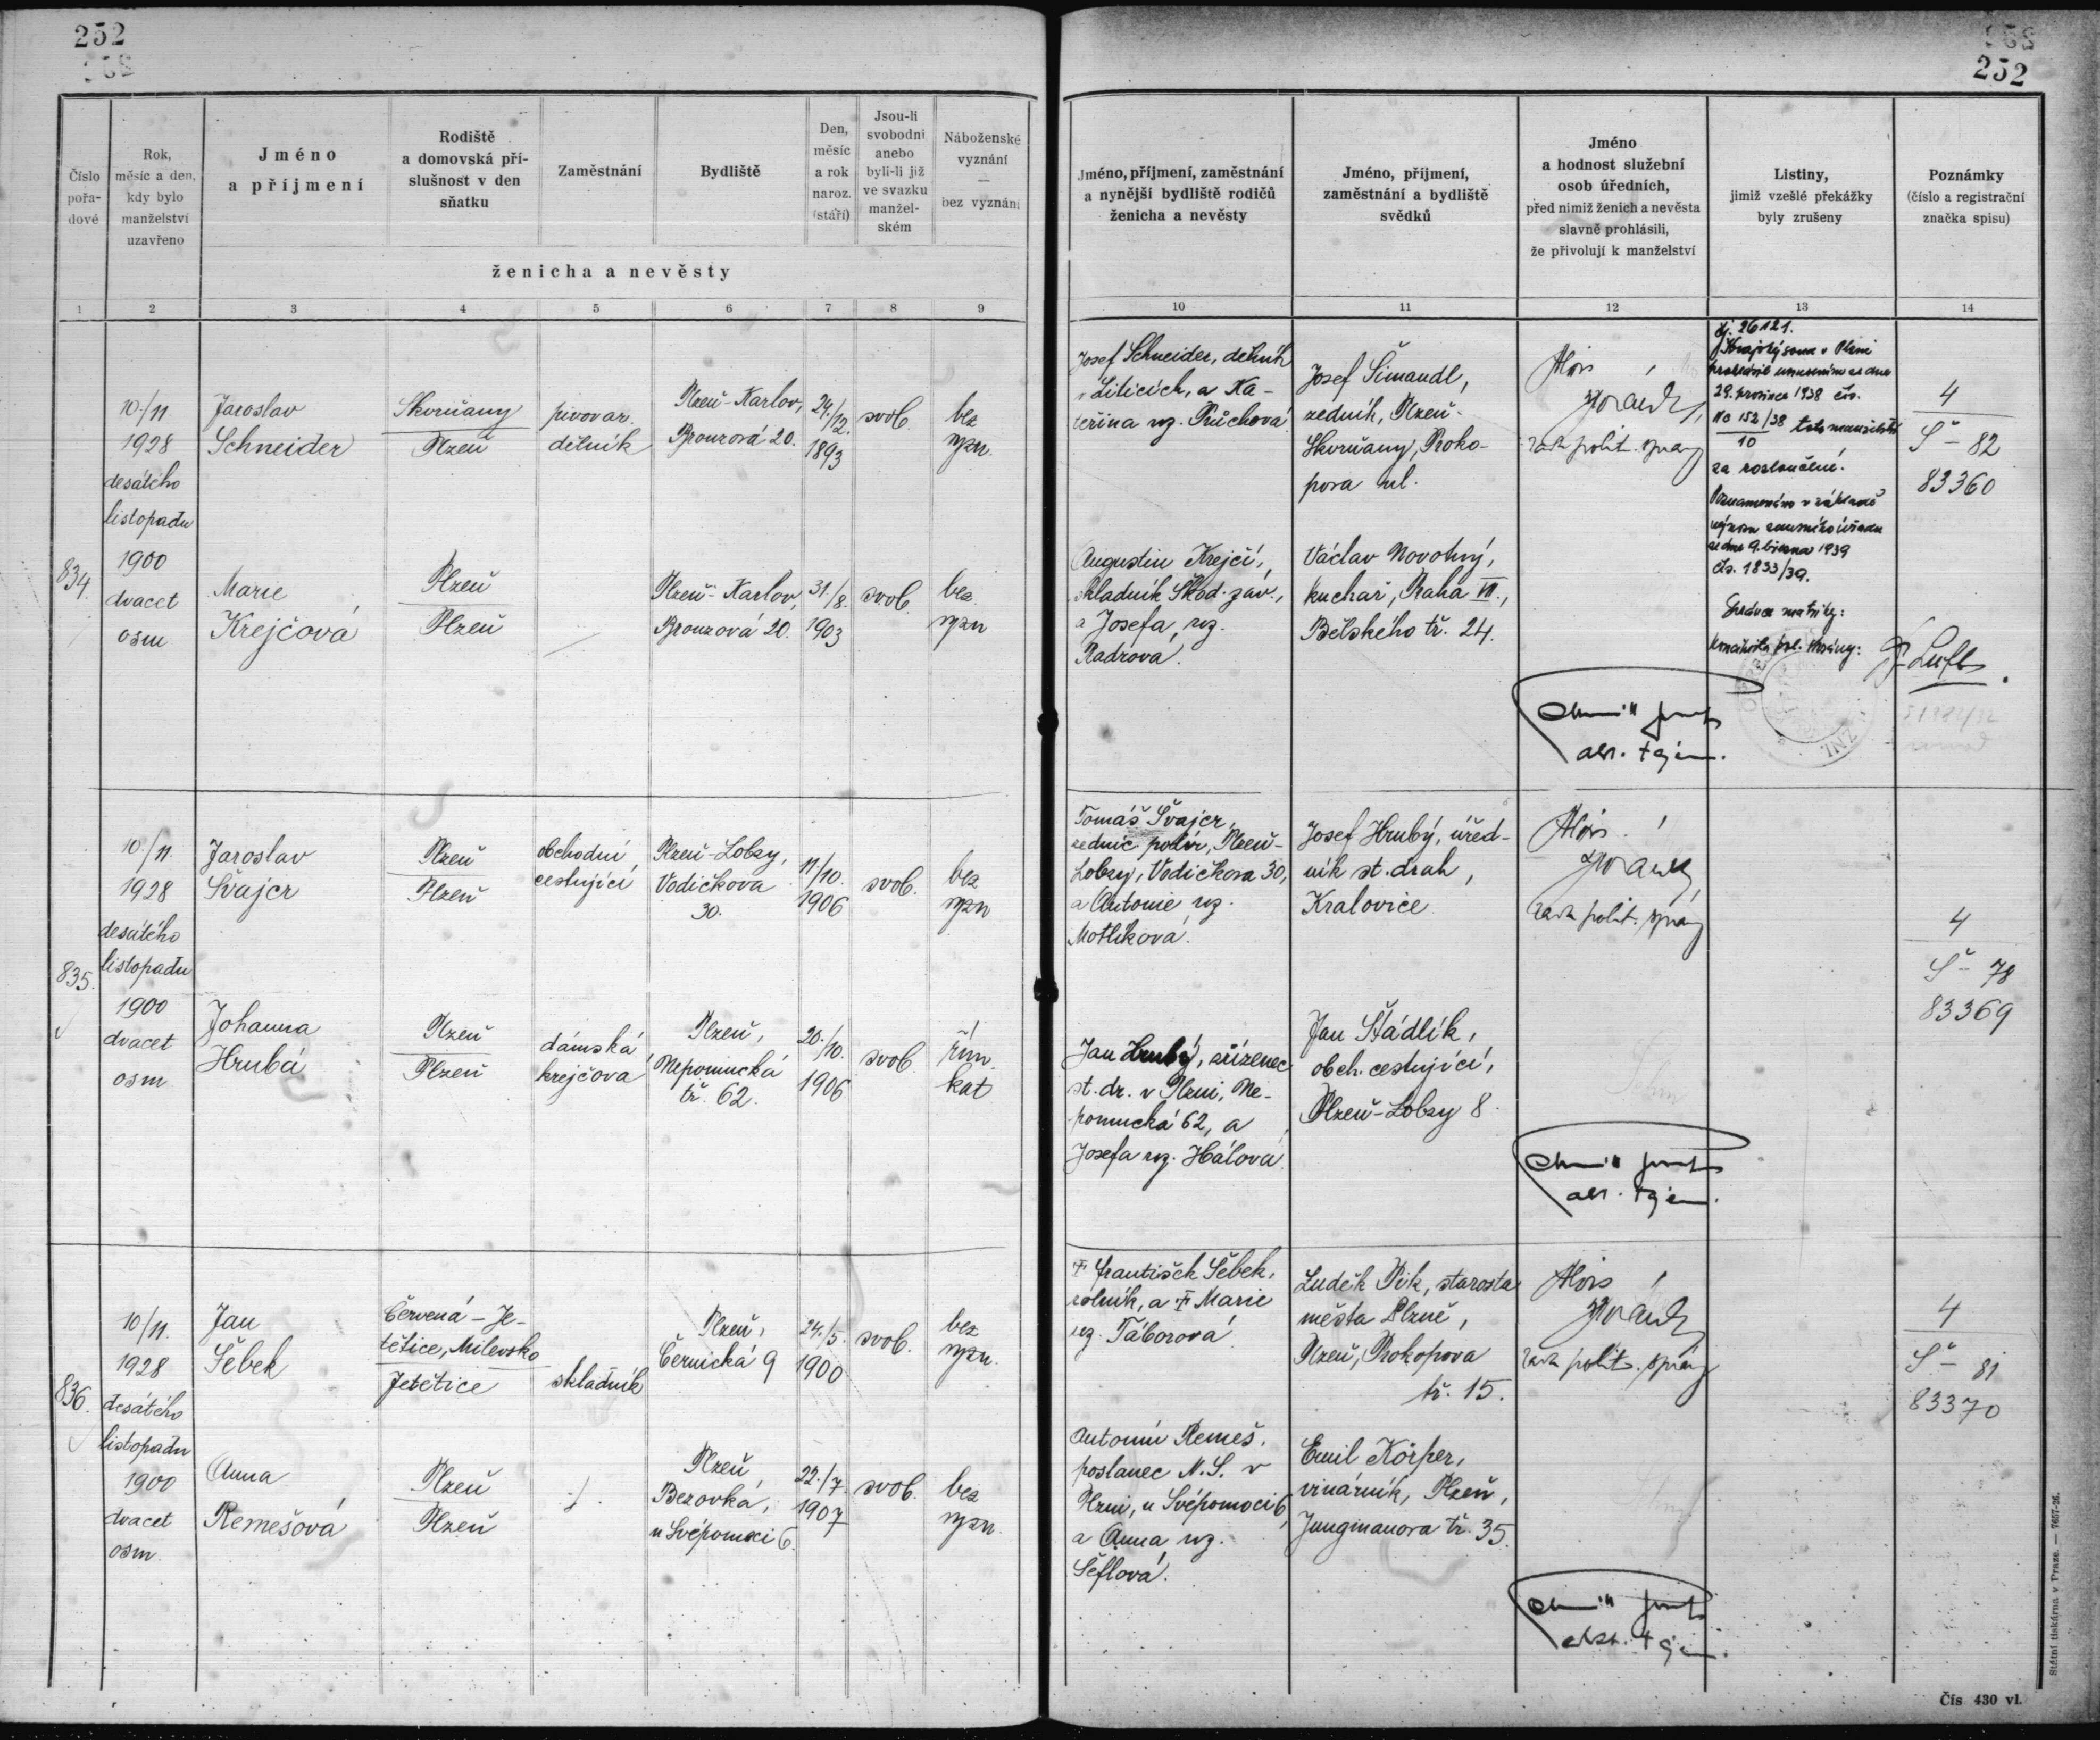 252
252
Číslo pořa-dové
Rok, měsíc a den, kdy bylo manželství uzavřeno
Jméno a příjmení
Rodiště a domovská pří-slušnost v den sňatku
Zaměstnání
Bydliště
Den, měsíc a rok naroz. (stáří)
Jsou-li svobodni anebo byli-li již ve svazku manžel-ském
Náboženské vyznání — bez vyznání
ženicha a nevěsty
Jméno, příjmení, zaměstnání a nynější bydliště rodičů ženicha a nevěsty
Jméno, příjmení, zaměstnání a bydliště svědků
Jméno a hodnost služební osob úředních, před nimiž ženich a nevěsta slavně prohlásili, že přivolují k manželství
Listiny, jimiž vzešlé překážky byly zrušeny
Poznámky (číslo a registrační značka spisu)
1 2 3 4 5 6 7 8 9 10 11 12 13 14
834.
10./11.
1928
desátého
listopadu
1900
dvacet
osm
Jaroslav
Schneider
Skvrňany
Plzeň
pivovar.
dělník
Plzeň-Karlov,
Bronzová 20.
24./12.
1893
svob.
bez
vyzn.
Marie
Krejčová
Plzeň
Plzeň
Plzeň-Karlov,
Bronzová 20.
31./8.
1903
svob.
bez
vyzn
Josef Schneider, dělník
v Liticích, a Ka-
teřina roz. Průchová
Augustin Krejčí,
skladník Škod. záv.,
a Josefa, roz.
Radová.
Josef Šimandl,
zedník, Plzeň-
Skvrňany, Proko-
pova ul.
Václav Novotný,
kuchař, Praha VII.,
Bělského tř. 24.
Alois
rada polit. správy
čj. 26121.
Krajský soud v Plzni
prohlásil usnesením ze dne
29. prosince 1938 čís.
152/38 toto manželství
10
za rozloučené.
Poznamenáno v základě
ze dne 9. března 1939
čís. 1833/39.
Správce matriky:
4
Š - 82
83360
835.
10./11.
1928
desátého
listopadu
1900
dvacet
osm
Jaroslav
Švajcr
Plzeň
Plzeň
obchodní
cestující
Plzeň-Lobzy,
Vodičkova
30.
11./10.
1906
svob.
bez
vyzn
Johanna
Hrubá
Plzeň
Plzeň
dámská
krejčová
Plzeň,
Nepomucká
tř. 62.
20./10.
1906
svob.
řím.
kat
Tomáš Švajcr,
zednic. polír, Plzeň-
Lobzy, Vodičkova 30,
a Antonie roz.
Motlíková.
Jan Hrubý, zřízenec
st. dr. v Plzni, Ne-
pomucká 62, a
Josefa roz. Hálová.
Josef Hrubý, úřed-
ník st. drah,
Kralovice
Jan Štádlík,
obch. cestující,
Plzeň-Lobzy 8.
Alois
rada polit. správy
4
Š - 78
83369
836.
10/11.
1928
desátého
listopadu
1900
dvacet
osm.
Jan
Šebek
Červená - Je-
tětice, Milevsko
Jetětice
skladník
Plzeň,
Černická 9
24./5.
1900
svob.
bez
vyzn.
Anna
Remešová
Plzeň
Plzeň
Plzeň,
Bezovka,
u Svépomoci 6.
22./7.
1907
svob.
bez
vyzn.
† František Šebek,
rolník, a † Marie
roz. Táborová.
Antonín Remeš,
poslanec N. S. v
Plzni, u Svépomoci 6,
a Anna, roz.
Šeflová.
Luděk Pik, starosta
města Plzně,
Plzeň, Prokopova
tř. 15.
Emil Körper,
vinárník, Plzeň,
Jungmanova tř. 35.
Alois
rada polit. správy
4
Š - 81
83370
Státní tiskárna v Praze. — 7657-26.
Čís 430 vl.